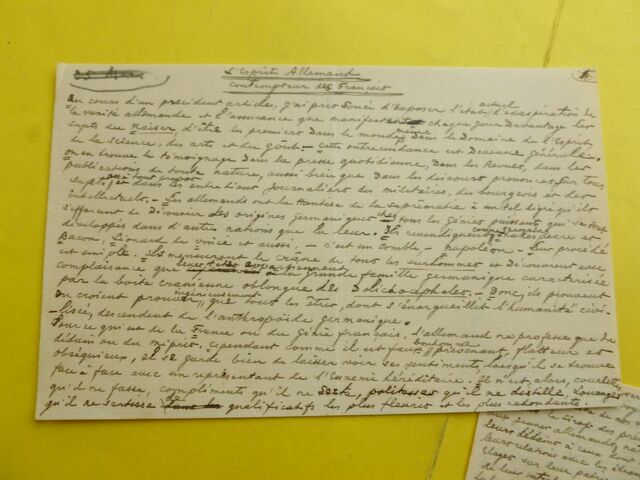 L'Esprit Allemand
contempteur des Français
Au cours d'un précédent article, j'ai pris souci d'exposer l'état actuel d'exaspération de
la vanité allemande et l'assurance que manifestent chaque jour davantage les
sujets du Kaiser, d'être les premiers dans le monde, même dans le domaine de l'Esprit,
de la science, des arts et du goût. - Cette outrecuidance est devenue générale.
on en trouve le témoignage dans la presse quotidienne, dans les Revues, dans les
publications de toute nature, aussi bien que dans les discours prononcés sur tous
sujets et à tout propos et dans les entretiens journaliers des militaires, des bourgeois et des
intellectuels. - Les allemands ont la hantise de la suprématie à un tel degré qu'ils
s'efforcent de découvrir des origines germaniques chez tous les Génies puissants qui se sont
développés dans d'autres nations que la leur. Ils revendiquent comme germains Shakespeare et
Bacon, Léonard de Vinci et aussi, - c'est un comble - Napoléon. - Leur procédé
est simple. Ils mensurent le crâne de tous les surhommes et découvrent avec
complaisance que leurs têtes appartiennent à la grande famille germanique caractérisée
par la boîte crânienne oblongue des Dolichocéphales. - Donc, ils prouvent
ou croient prouver que tous les êtres, dont s'énorgueillit l'humanité civi-
-lisée, descendent de l'anthropoïde germanique.
Pour ce qui est de la France ou du génie français, l'allemand ne professe que du
dédain ou du mépris. cependant comme il est faux bonhomme prévenant, flatteur et
obséquieux, il se garde bien de laisser voir ses sentiments lorsqu'il se trouve
face à face avec un représentant de l'Ennemi héréditaire. Il n'est, alors, courtoisies
qu'il ne fasse, compliments qu'il ne politesses qu'il ne distille, louanges
qu'il ne sertisse qualificatifs les plus fleuris et les plus redondants.
leurs dédains à ceux dont
leurs relations avec les étran